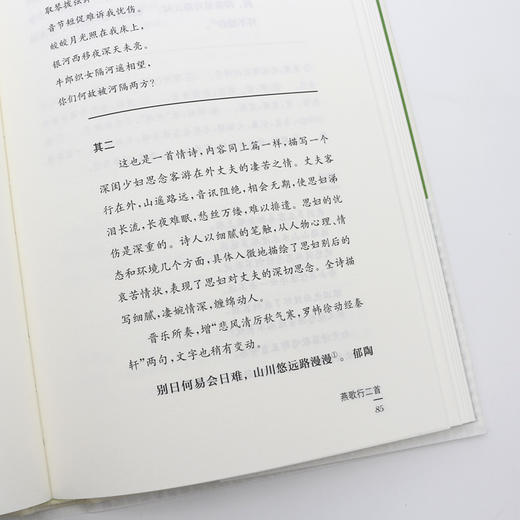 取琴拨弦
音节短促难诉我忧伤。
皎皎月光照在我床上，
银河西移夜深天未亮。
牛郎织女隔河遥相望，
你们何故被河隔两方？
其二
这也是一首情诗，内容同上篇一样，描写一个
深闺少妇思念客游在外丈夫的凄苦之情。丈夫客
行在外，山遥路远，音讯阻绝，相会无期，使思妇涕
泪长流，长夜难眠，愁丝万缕，难以排遣。思妇的忧
伤是深重的。诗人以细腻的笔触，从人物心理、情
态和环境几个方面，具体入微地描绘了思妇别后的
哀苦情状，表现了思妇对丈夫的深切思念。全诗描
写细腻，凄婉情深，缠绵动人。
晋乐所奏，增“悲风清厉秋气寒，罗帏徐动经秦
轩”两句，文字也稍有变动。
别日何易会日难，山川悠远路漫漫①。郁陶
燕歌行二首
85